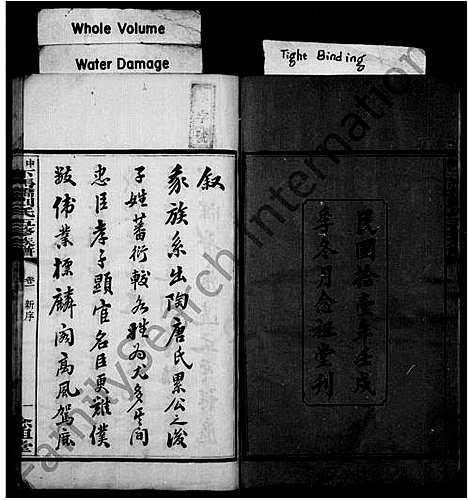 Whole Volume
Water Damage
Tight Binding
民國拾壹年壬戌
季冬月念祖堂刊
叙
我族系出陶唐氏累公之後
子姓蕃衍較各姓為尤多其間
忠臣孝子顯宦名臣更難僕
数偉業標麟閣高風駕鹿
劉氏
卷一 新序
念祖堂
FamilySearch International